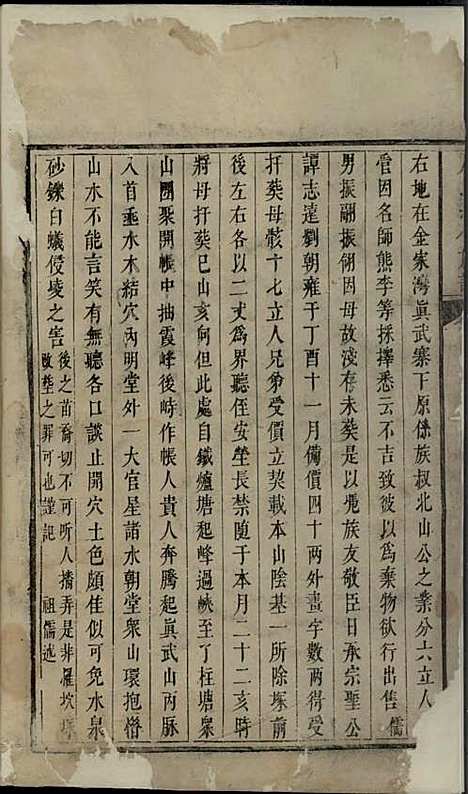 右地在金家灣真武寨下原係族叔北山公之業分六立人
管因名師熊李等採擇悉云不吉致彼以為棄物欲行出售儒
男振翮振翎因母故淺存未葬是以凂族友敬臣日承宗聖公
譚志遠劉朝雍于丁酉十一月備價四十兩外畫字數兩得受
扦葬母骸十七立人兄弟受價立契載本山陰基一所除塚前
後左右各以二丈為界聽侄安塋長禁随于本月二十二亥時
將母扦葬巳山亥向但此處自鐵爐塘起峰過峽至了枉塘衆
山團聚開帳中抽霞峰後峙作帳人貴人奔騰起真武山丙脉
入首垂水木結穴內明堂外一大官星諸水朝堂衆山環抱
山水不能言笑有無聽各口談止開穴土色頗佳似可免水泉
砂鑠白蟻侵凌之害
後之苗裔切不可听人播弄是非
改塋之罪可也謹記 祖儒述